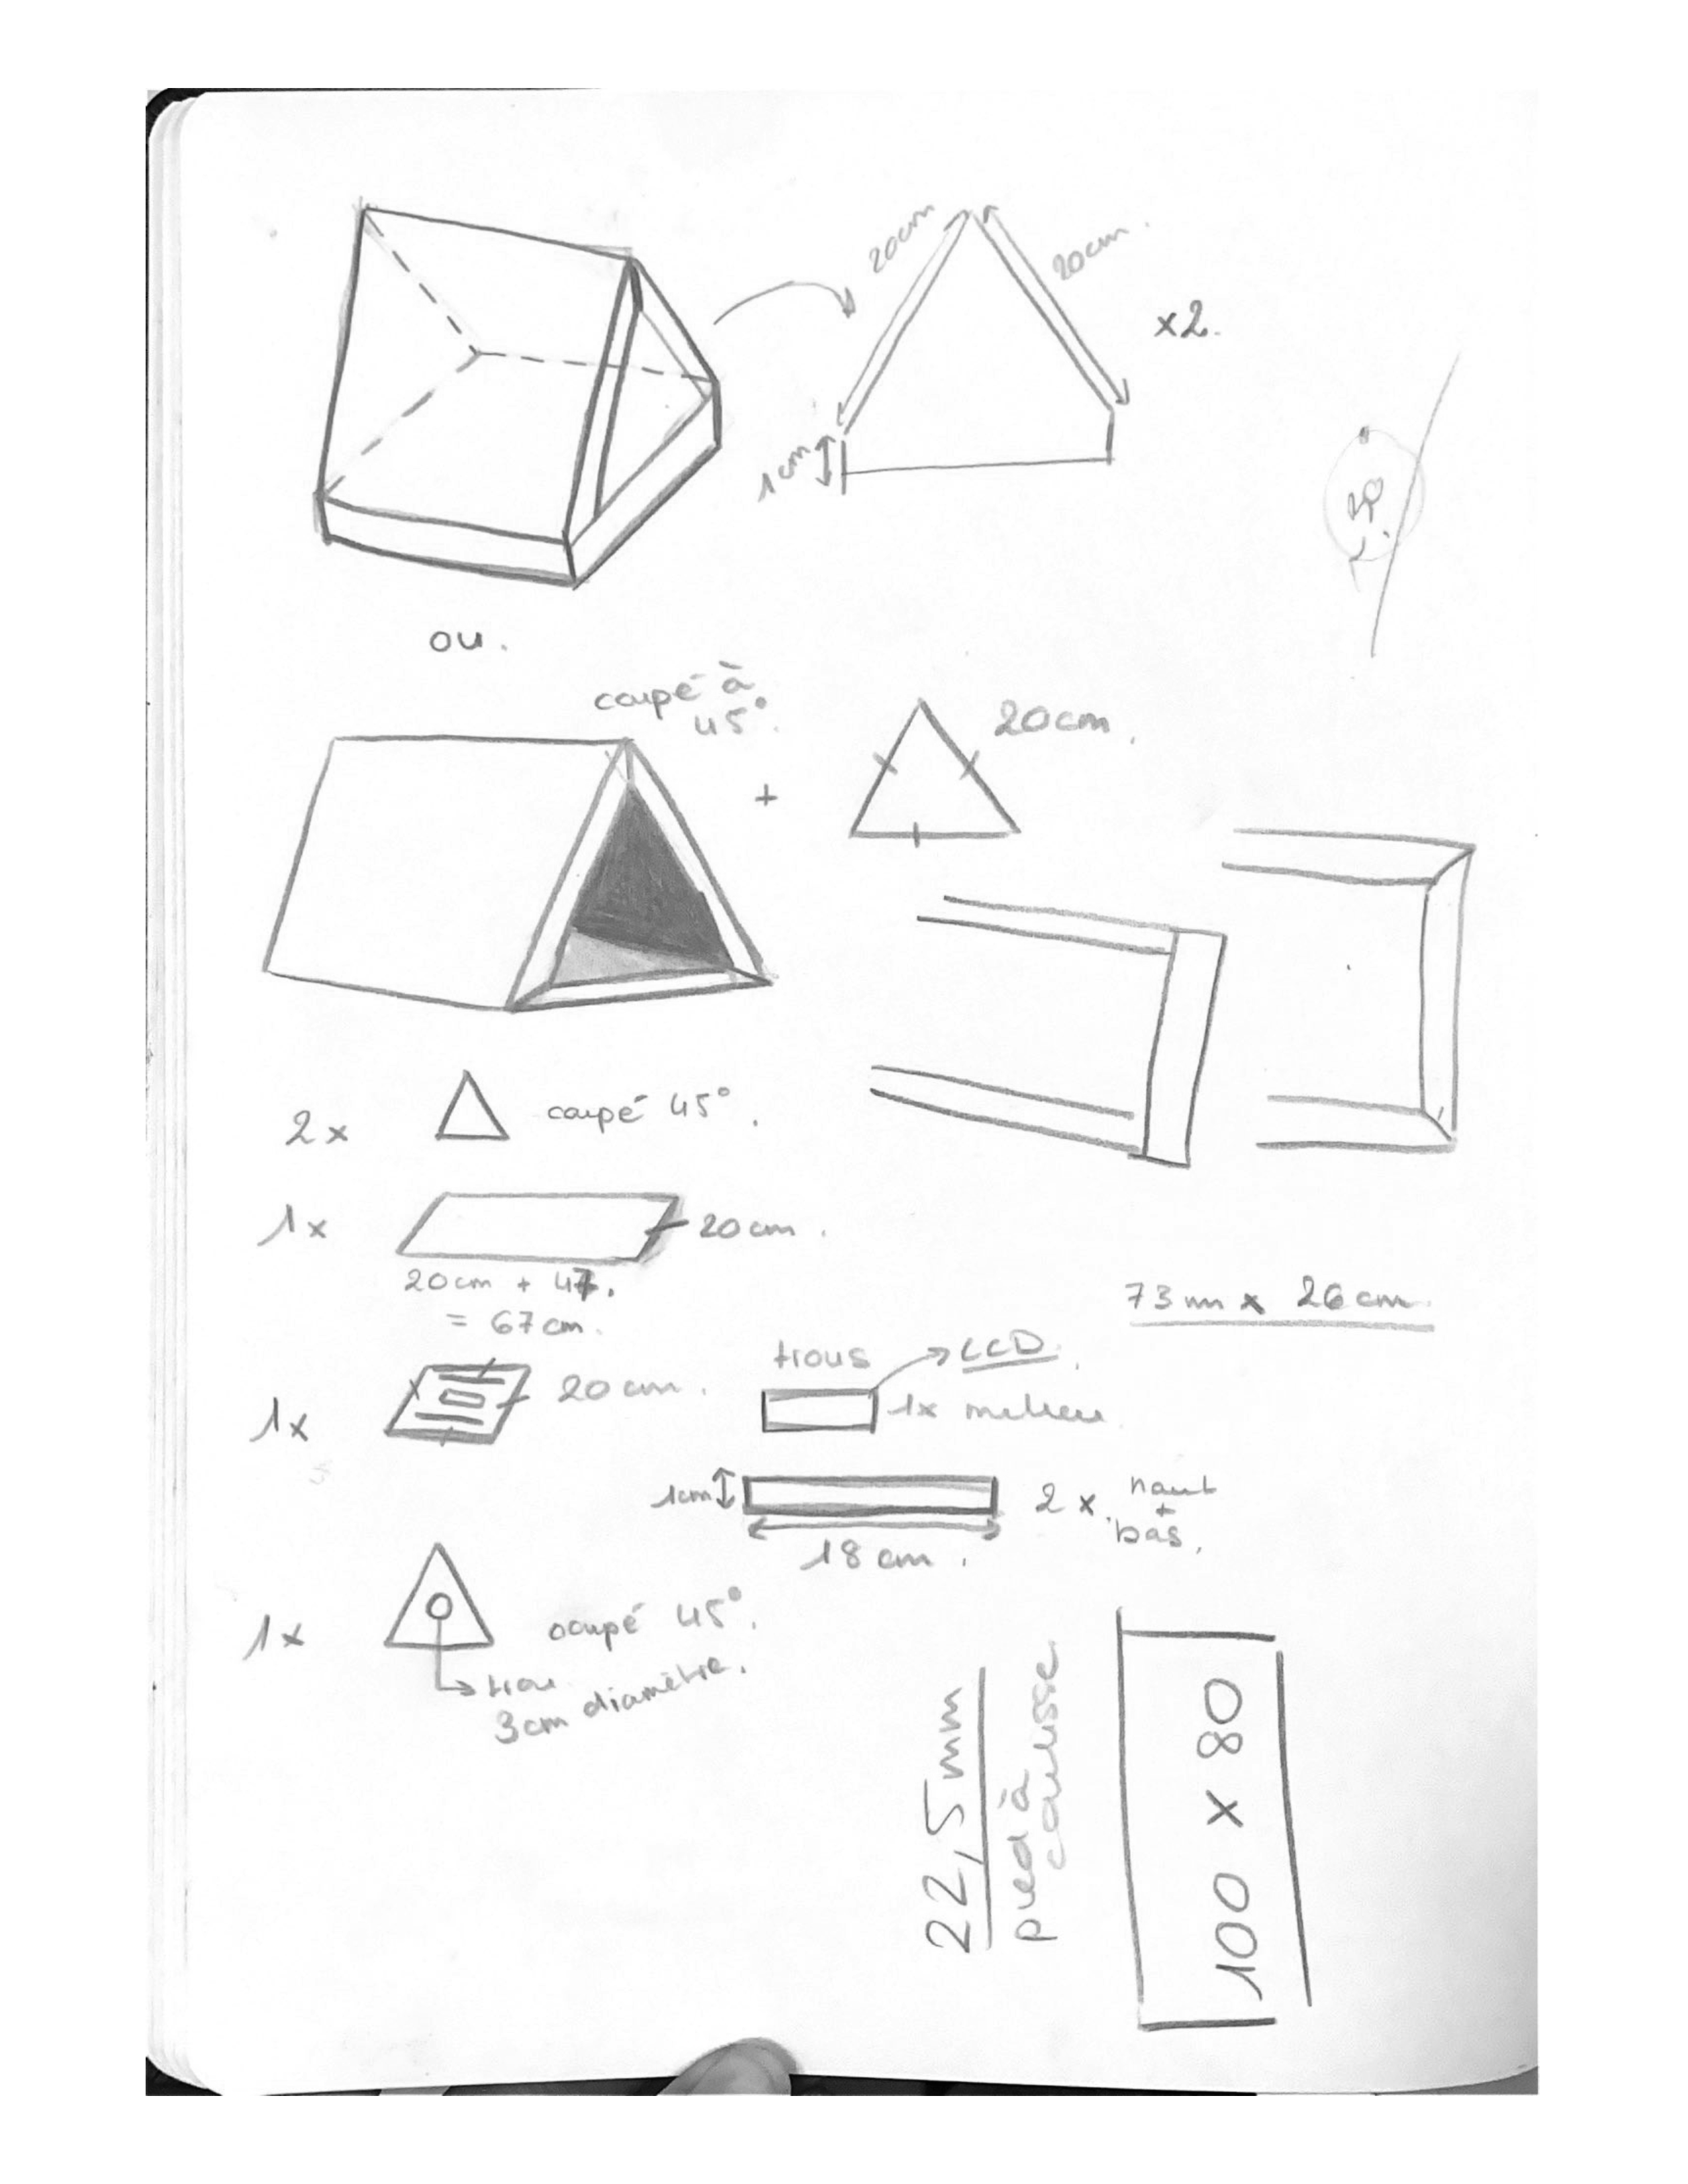 20cm
20cm.
x2.
1cm
ou.
coupé à
45°.
+
20cm.
2x
coupé 45°.
1x
20cm.
20cm + 47.
= 67cm.
73mm x 26cm.
trous
LCD.
1x
20cm.
1x milieu.
1cm
2x.
haut
+
bas.
18cm.
1x
coupé 45°.
trou
3cm diamètre.
22,5mm
pied à
coulisse
100 x 80